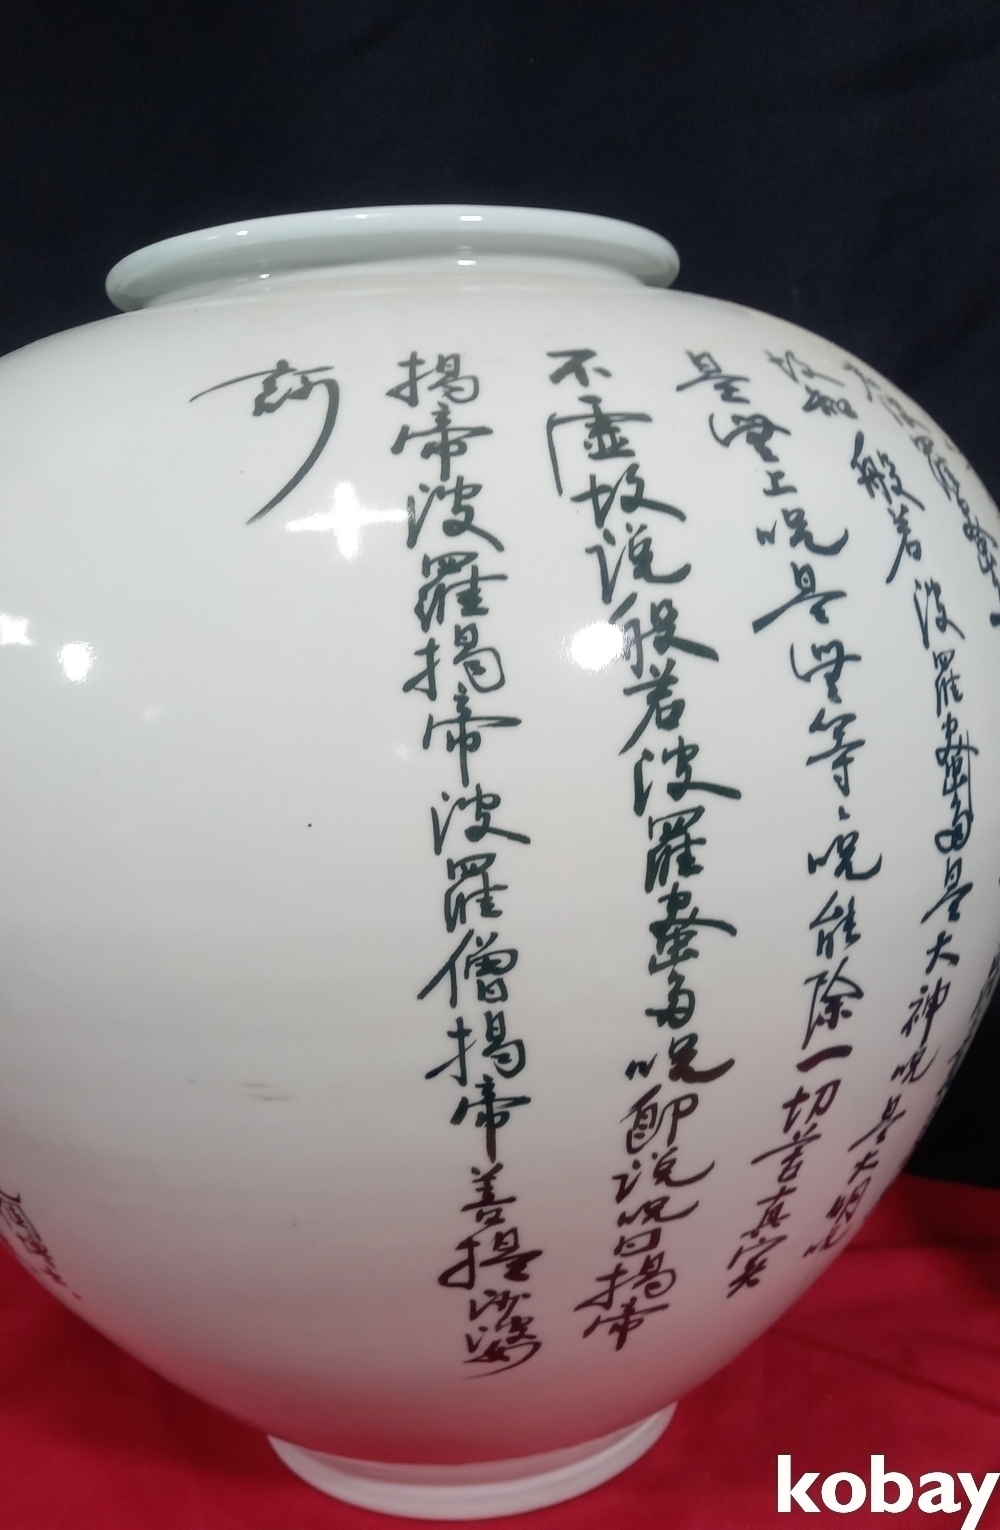 故知般若波羅蜜多是大神呪是大明呪
是無上呪是無等々呪能除一切苦真实
不虛故説般若波羅蜜多呪即説呪曰揭帝
揭帝波羅揭帝波羅僧揭帝菩提沙婆
訶
kobay